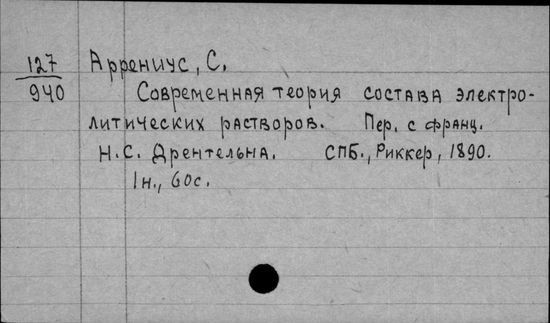 127
940
Аррениус, С.
Современная теория состава электро-
литических растворов. Пер. с франц.
Н.С. Дрентельна. СПБ., Риккер, 1890.
1н., 60с.